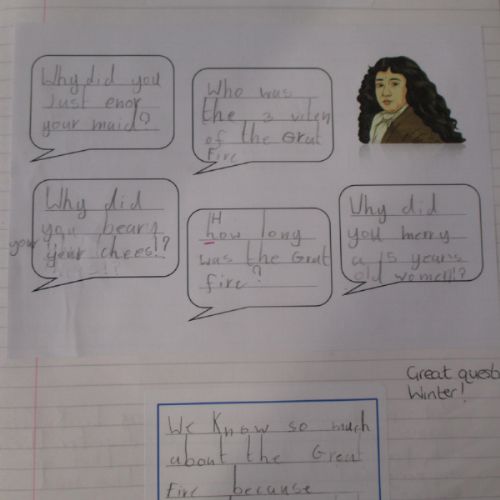 Why did you
Just enor
your maid?
Who was
the 3 viten
of the Grat
Fire
Why did
you beary
your chees!?
your
H
how long
was the Great
fire?
Why did
you merry
a 15 years
old women!?
Great quest
Winter!
We Know so much
about the Great
Fire because